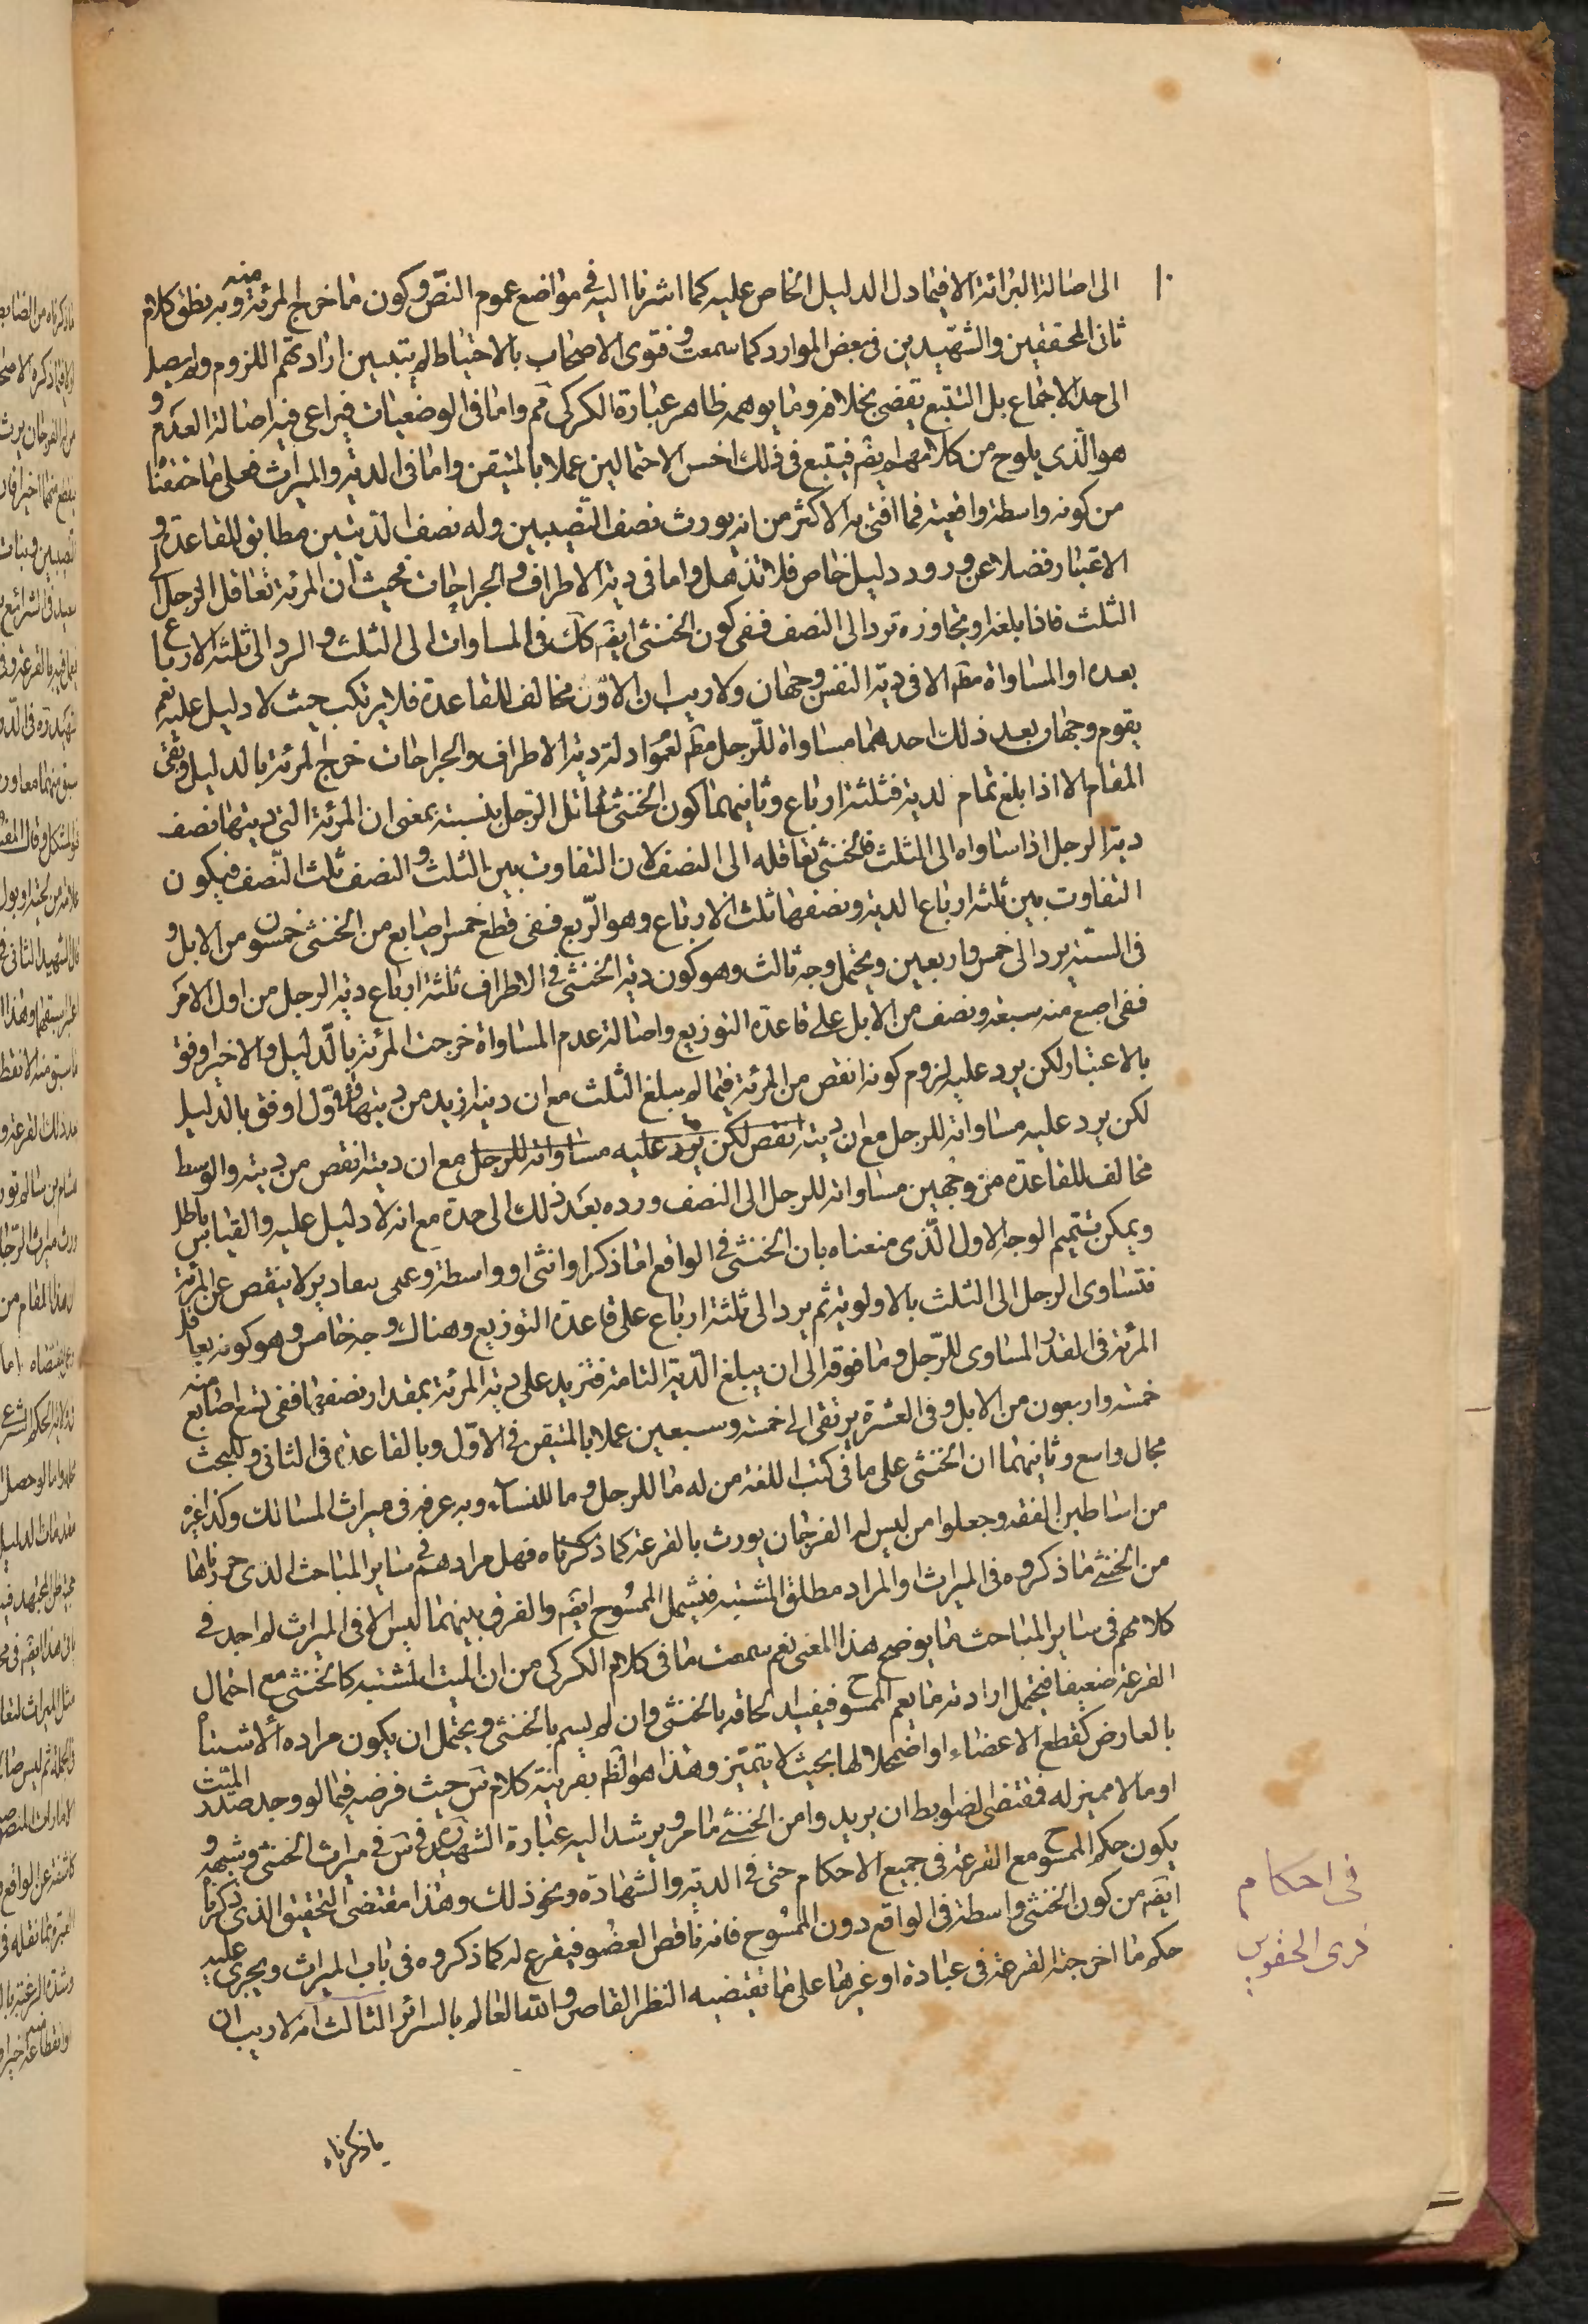 ١٠
الى اصالة البرائة الا فيما دل الدليل الخاص عليه كما اشرنا اليه فى مواضع عموم النصّ وكون ما خرج المرئة منه وبه نطق كلام
ثانى المحققين والشهيدين فى بعض الموارد كما سمعت وفتوى الاصحاب بالاحتياط لم يتبين ارادتهم اللزوم ولم يصل
الى حد الاجماع بل التتبع يقضى بخلافه وما يوهمه ظاهر عبارة الكركى مم واما فى الوضعيات فيراعى فيه اصالة العدم و
هو الّذى يلوح من كلامهم ايضً فيتبع فى ذلك اخس الاحتمالين عملا بالمتيقن واما فى الدية والميراث فعلى ما حققنا
من كونه واسطة واقعية فما افتى به الاكثر من انه يورث نصف النصيبين وله نصف الديتين مطابق للقاعدة و
الاعتبار فضلا عن ورود دليل خاص فلا تذهل واما فى دية الاطراف والجراحات فحيث ان المرئة تعاقل الرجل الى
الثلث فاذا بلغه او تجاوزه ترد الى النصف ففى كون الخنثى ايضً كك فى المساوات الى الثلث والرد الى ثلثة الارباع
بعده او المساواة مطً الا فى دية النفس وجهان ولا ريب ان الاوّل مخالف للقاعدة فلا يرتكب حيث لا دليل عليه نعم
يقوم وجهان بعد ذلك احدهما مساواة للرّجل مطً لعموا دلة دية الاطراف والجراحات خرج المرئة بالدليل وبقى
المقام الا اذا بلغ تمام الدية فثلثة ارباع وثانيهما كون الخنثى تماثل الرّجل بنسبته بمعنى ان المرئة التى ديتها نصف
دية الرجل اذا ساواه الى الثلث فالخنثى تعاقله الى النصف لان التفاوت بين الثلث والنصف ثلث النّصف فيكون
التفاوت بين ثلثة ارباع الدية ونصفها ثلث الارباع وهو الرّبع ففى قطع خمس اصابع من الخنثى خمسون من الابل و
فى الستّة يرد الى خمس واربعين ويحتمل وجه ثالث وهو كون دية الخنثى فى الاطراف ثلثة ارباع دية الرجل من اول الامر
ففى اصبع منه سبعة ونصف من الابل على قاعدة التوزيع واصالة عدم المساواة خرجت المرئة بالدّليل والاخير اوفق
بالاعتبار لكن يرد عليه لزوم كونه انقص من المرئة فيما لم يبلغ الثلث مع ان ديته ازيد من ديتها والاول اوفق بالدليل
لكن يرد عليه مساواته للرجل مع ان ديته انقص لكن يرد عليه مساواته للرجل مع ان ديته انقص من ديته والوسط
مخالف للقاعدة من وجهين مساواته للرجل الى النصف ورده بعد ذلك الى حدة مع انه لا دليل عليه والقياس باطل
ويمكن تتميم الوجه الاول الّذى منعناه بان الخنثى فى الواقع اما ذكر او انثى او واسطة وعلى تقادير لا ينقص عن المرئة
فتساوى الرجل الى الثلث بالاولوية ثم يرد الى ثلثة ارباع على قاعدة التوزيع وهناك وجه خامس وهو كونه يعاقل
المرئة فى القدر المساوى للرّجل وما فوقه الى ان يبلغ الدّية التامة فتزيد على دية المرئة بمقدار نصفها ففى تسع اصابع منه
خمسة واربعون من الابل وفى العشرة يرتقى الى خمسة وسبعين عملا بالمتيقن فى الاوّل وبالقاعدة فى الثانى وللبحث
مجال واسع وثانيهما ان الخنثى على ما فى كتب اللغة من له ما للرجل وما للنساء وبه عرفه فى ميراث المسالك وكذا غيره
من اساطين الفقه وجعلوا من ليس له الفرجان يورث بالقرعة كما ذكرناه فهل مرادهم فى سائر المباحث الذى حررناها
من الخنثى ما ذكروه فى الميراث او المراد مطلق المشتبه فيشمل الممسُوح ايضً والفرق بينهما ليس الا فى الميراث لم اجد فى
كلامهم فى سائر المباحث ما يوضح هذا المعنى نعم سمعت ما فى كلام الكركى من ان الميت المشتبه كالخنثى مع احتمال
القرعة ضعيفا فيحتمل ارادته ما يعم الممسوح فيفيد الحاقه بالخنثى وان لم يسم بالخنثى ويحتمل ان يكون مراده الاشتباه
بالعارض كقطع الاعضاء او اضمحلالها بحيث لا يتميّز وهذا هو الظّ بقرينة كلام سَ حيث فرضه فيما لو وجد صدر الميّت
او ما لا مميز له فمقتضى الضوابط ان يريدوا من الخنثى ما مر ويرشد اليه عبارة الشهيد ره فى سَ فى ميراث الخنثى وشبهه و
يكون حكم الممسوح مع القرعة فى جميع الاحكام حتى فى الدية والشهادة ونحو ذلك وهذا مقتضى التحقيق الذى ذكرنا
ايضً من كون الخنثى واسطة فى الواقع دون الممسُوح فانه ناقص العضو فيقرع له كما ذكروه فى باب الميراث ويجرى عليه
حكم ما اخرجته القرعة فى عبادة او غيرها على ما تقتضيه النظر القاصر والله العالم بالسرائر الثالث انه لا ريب ان
ما ذكرناه
فى احكام
ذى الحقوين